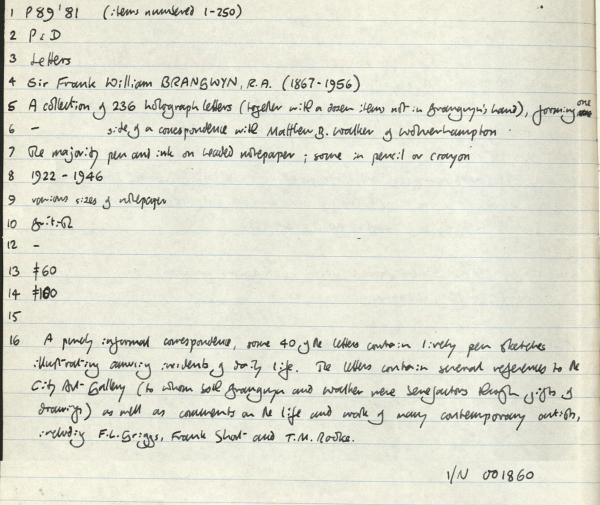 1 P89'81 (items numbered 1-250)
2 P & D
3 Letters
4 Sir Frank William BRANGWYN, R.A. (1867-1956)
5 A collection of 236 holograph letters (together with a dozen items not in Brangwyn's hand), forming one
6 - side of a correspondence with Matthew B. Walker of Wolverhampton
7 The majority pen and ink on headed notepaper; some in pencil or crayon
8 1922 - 1946
9 various sizes of notepaper
10 British
12 -
13 £60
14 £100
15
16 A purely informal correspondence, some 40 of the letters contain lively pen sketches
illustrating amusing incidents of daily life. The letters contain several references to the
City Art Gallery (to whom both Brangwyn and Walker were benefactors through gifts of
drawings) as well as comments on the life and work of many contemporary artists,
including F.L. Griggs, Frank Short and T.M. Rooke.
I/N 001860